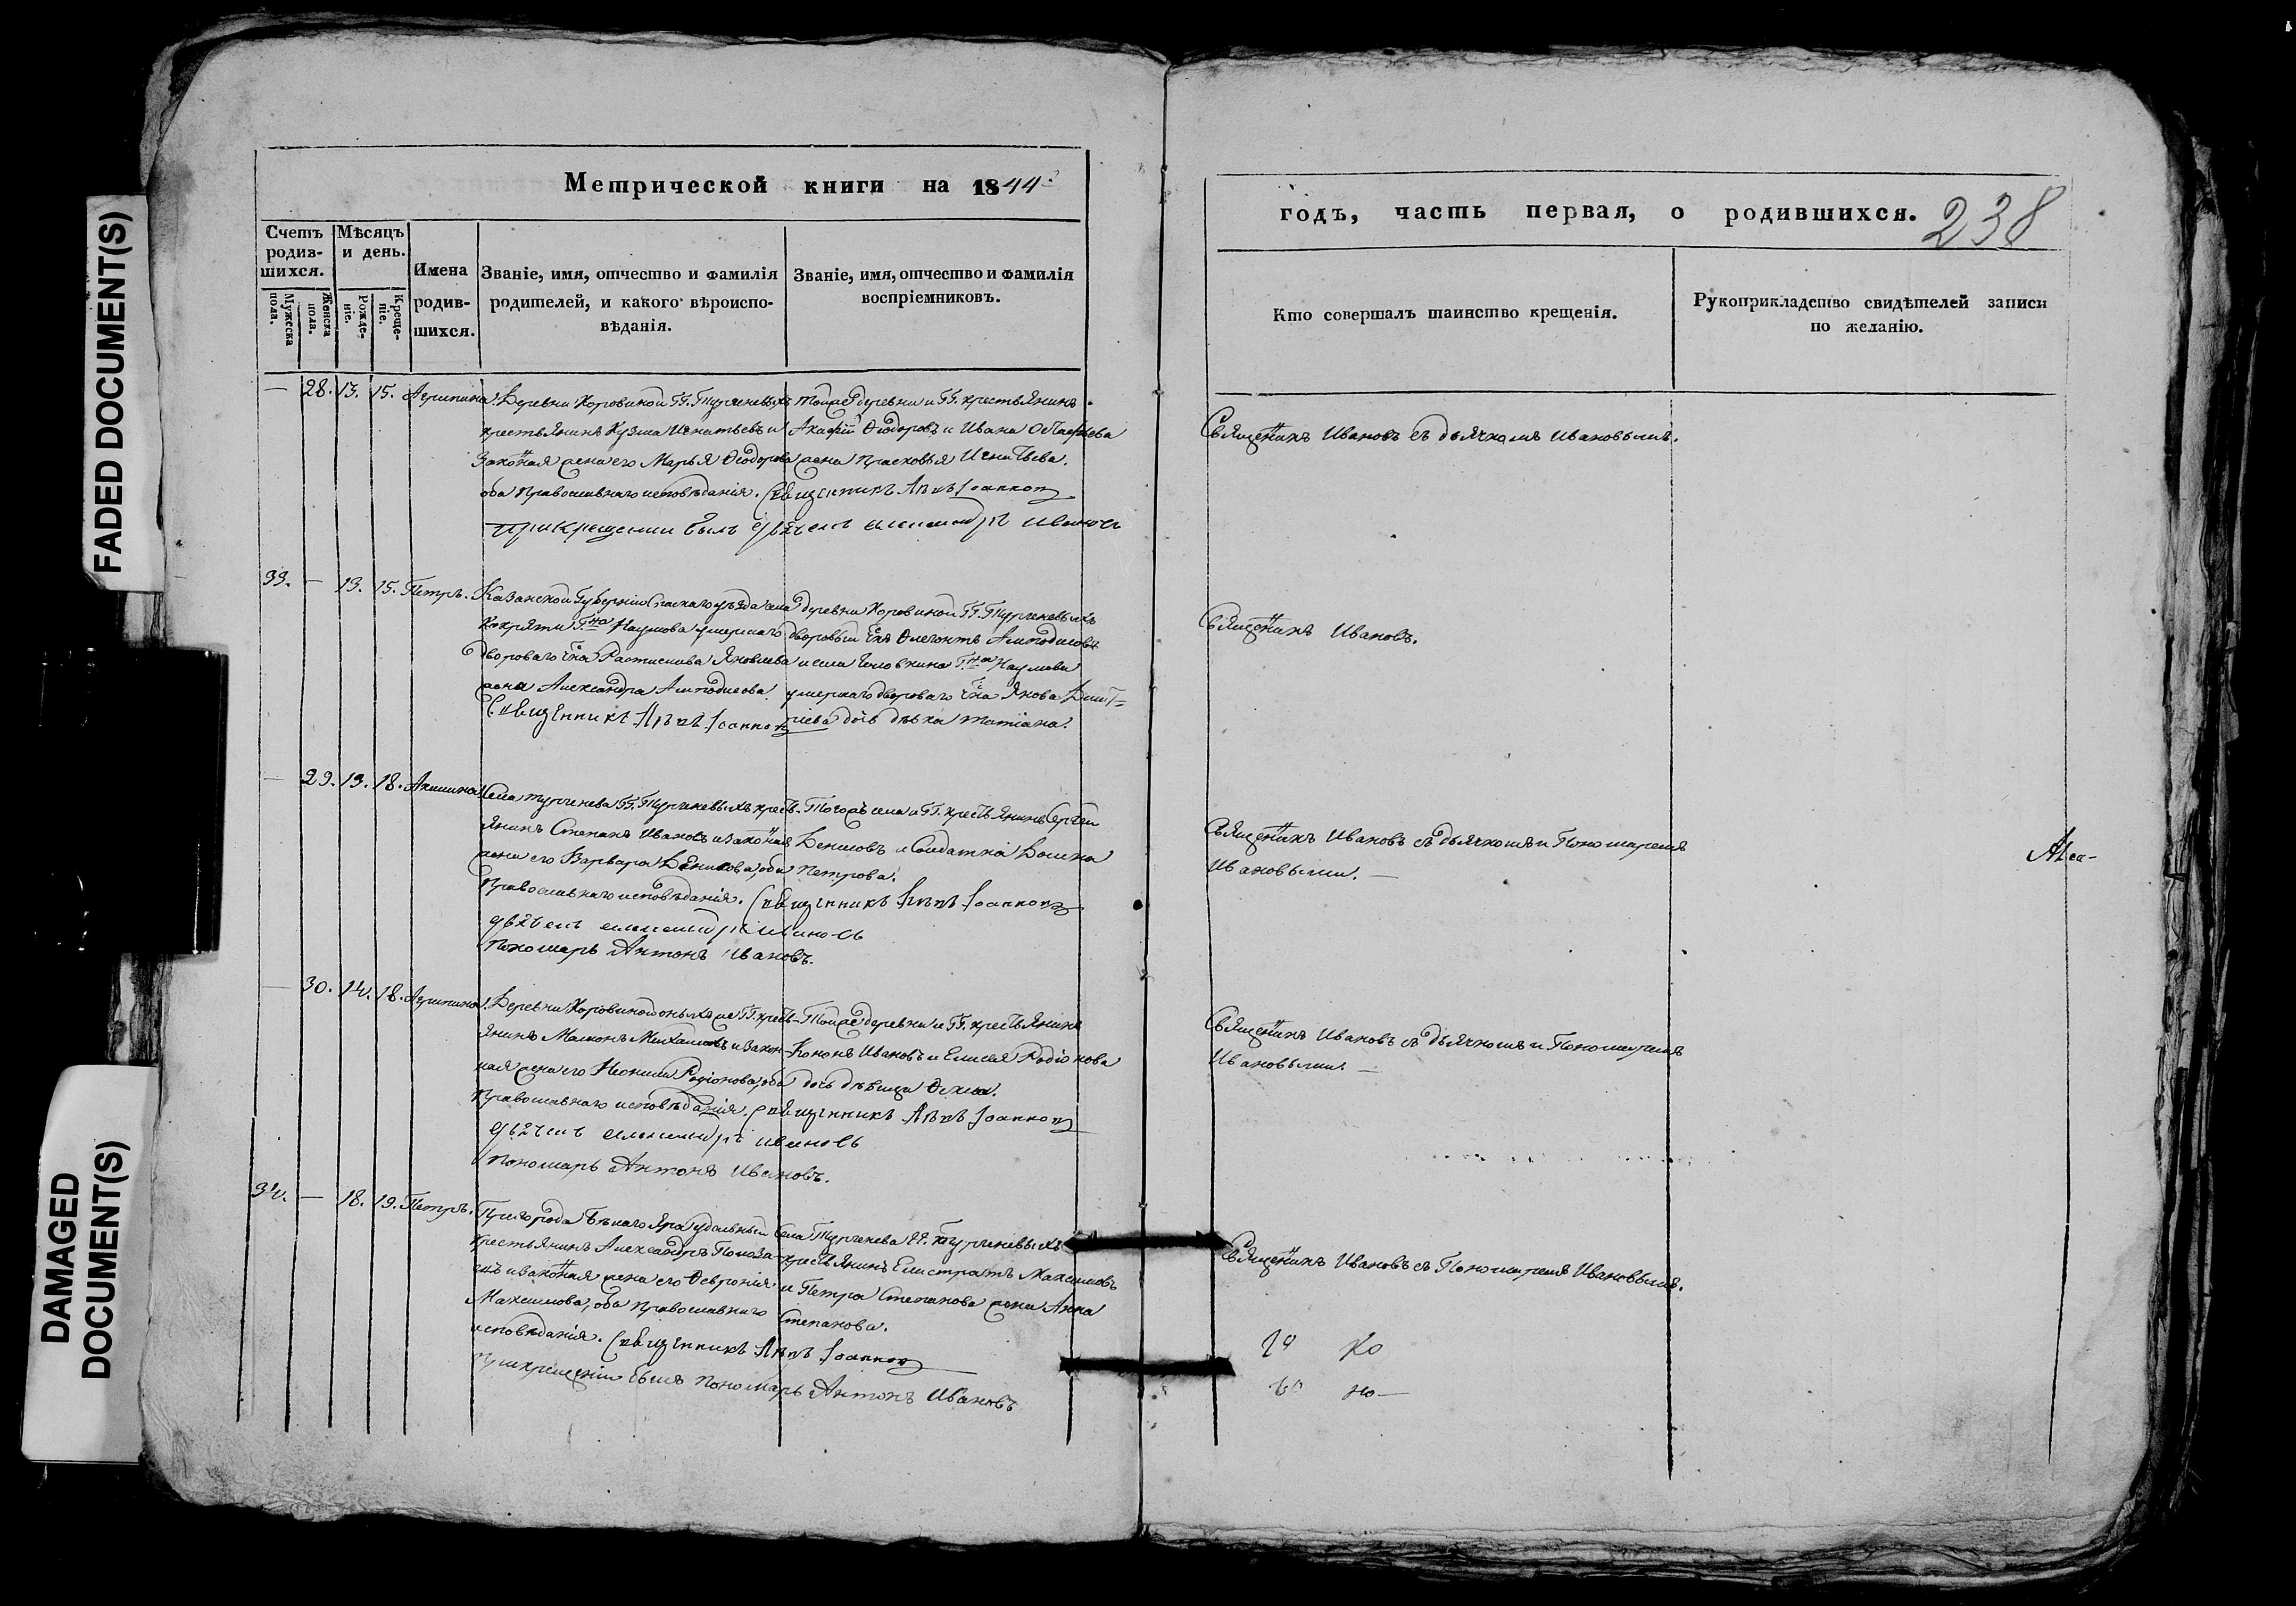 FADED DOCUMENT(S)
DAMAGED
DOCUMENT(S)
Метрической книги на 1844й
Счетъ родив-шихся.
Мужеска пола.
Женска пола.
Мѣсяцъ и день.
Рожде-ніе.
Креще-ніе.
Имена родив-шихся.
Званіе, имя, отчество и фамилія
родителей, и какого вѣроиспо-
вѣданія.
Званіе, имя, отчество и фамилія
воспріемниковъ.
— 28. 13. 15. Агрипина.
Деревни Коровиной ГГ. Тургеневыхъ
крестьянинъ Кузма Игнатьевъ и
Законная жена его Марья Ѳеодорова
оба Православнаго исповѣданія. Священникъ Іоаннов
при крещеніи былъ дьячекъ Александръ Ивановъ
тойже деревни и ГГ. крестьянинъ
Ѳеодоровъ и Ивана
жена Прасковья Игнатьева.
33. — 13. 15. Петръ.
Казанской Губерніи Спаскаго уѣзда села
Кокряти Гна Наумова умершаго
дворового Чка Яковлева
жена Александра
Священникъ Іоаннов
деревни Коровиной ГГ. Тургеневыхъ
дворовый Чкъ
и села Головкина Гна Наумова
умершаго дворового Чка Якова Дмит-
ріева дочь дѣвка Татіана.
— 29. 13. 18. Акилина.
Села Тургенева ГГ. Тургеневыхъ кресть-
янинъ Степанъ Ивановъ и законная
жена его Варвара Денисова, оба
Православнаго исповѣданія. Священникъ Іоаннов
дьячекъ Александръ Ивановъ
Пономарь Антонъ Ивановъ.
Тогожъ села и ГГ. крестьянинъ Сергѣй
Денисовъ и Солдатка Домна
Петрова.
— 30. 14. 18. Агрипина.
Деревни Коровиной оныхъ же ГГ. кресть-
янинъ Михайловъ и закон-
ная жена его Неонила Родіонова, оба
Православнаго исповѣданія. Священникъ Іоаннов
дьячекъ Александръ Ивановъ
Пономарь Антонъ Ивановъ.
Тойже деревни и ГГ. крестьянинъ
Кононъ Ивановъ и Елисея Родіонова
дочь дѣвица Ѳекла.
34. — 18. 19. Петръ.
Пригорода Бѣлаго Яра удѣльный
крестьянинъ Александръ
и законная жена его Ѳевронія
Максимова, оба православнаго
исповѣданія. Священникъ Іоаннов
при крещеніи былъ пономарь Антонъ Ивановъ
Села Тургенева ГГ. Тургеневыхъ
крестьянинъ Елистратъ Максимовъ
и Петра Степанова жена Анна
Степанова.
годъ, часть первая, о родившихся.
238
Кто совершалъ таинство крещенія.
Рукоприкладство свидѣтелей записи
по желанію.
Священникъ Ивановъ съ дьячкомъ Ивановымъ.
Священникъ Ивановъ.
Священникъ Ивановъ съ дьячкомъ и Пономаремъ
Ивановыми. —
Священникъ Ивановъ съ дьячкомъ и Пономаремъ
Ивановыми. —
Священникъ Ивановъ съ Пономаремъ Ивановымъ.